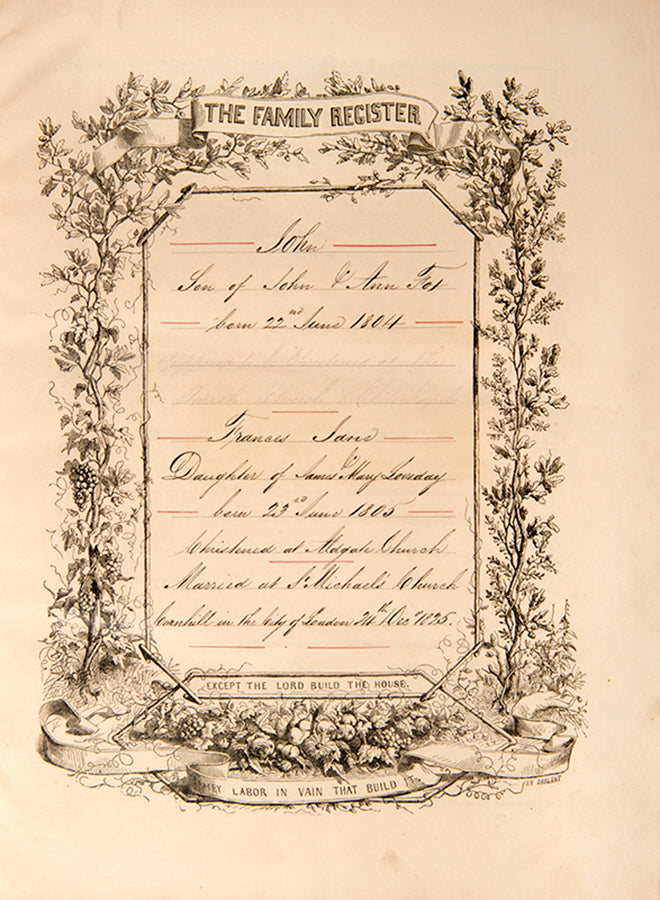 THE FAMILY REGISTER
John
Son of John & Ann Fox
born 22nd June 1804
to be Christened at the
Parish Church of
Frances Jane
Daughter of James & Mary Loveday
born 23rd June 1805
Christened at Aldgate Church
Married at St Michael's Church
Cornhill in the City of London 24th Decr 1825.
EXCEPT THE LORD BUILD THE HOUSE.
THEY LABOR IN VAIN THAT BUILD IT